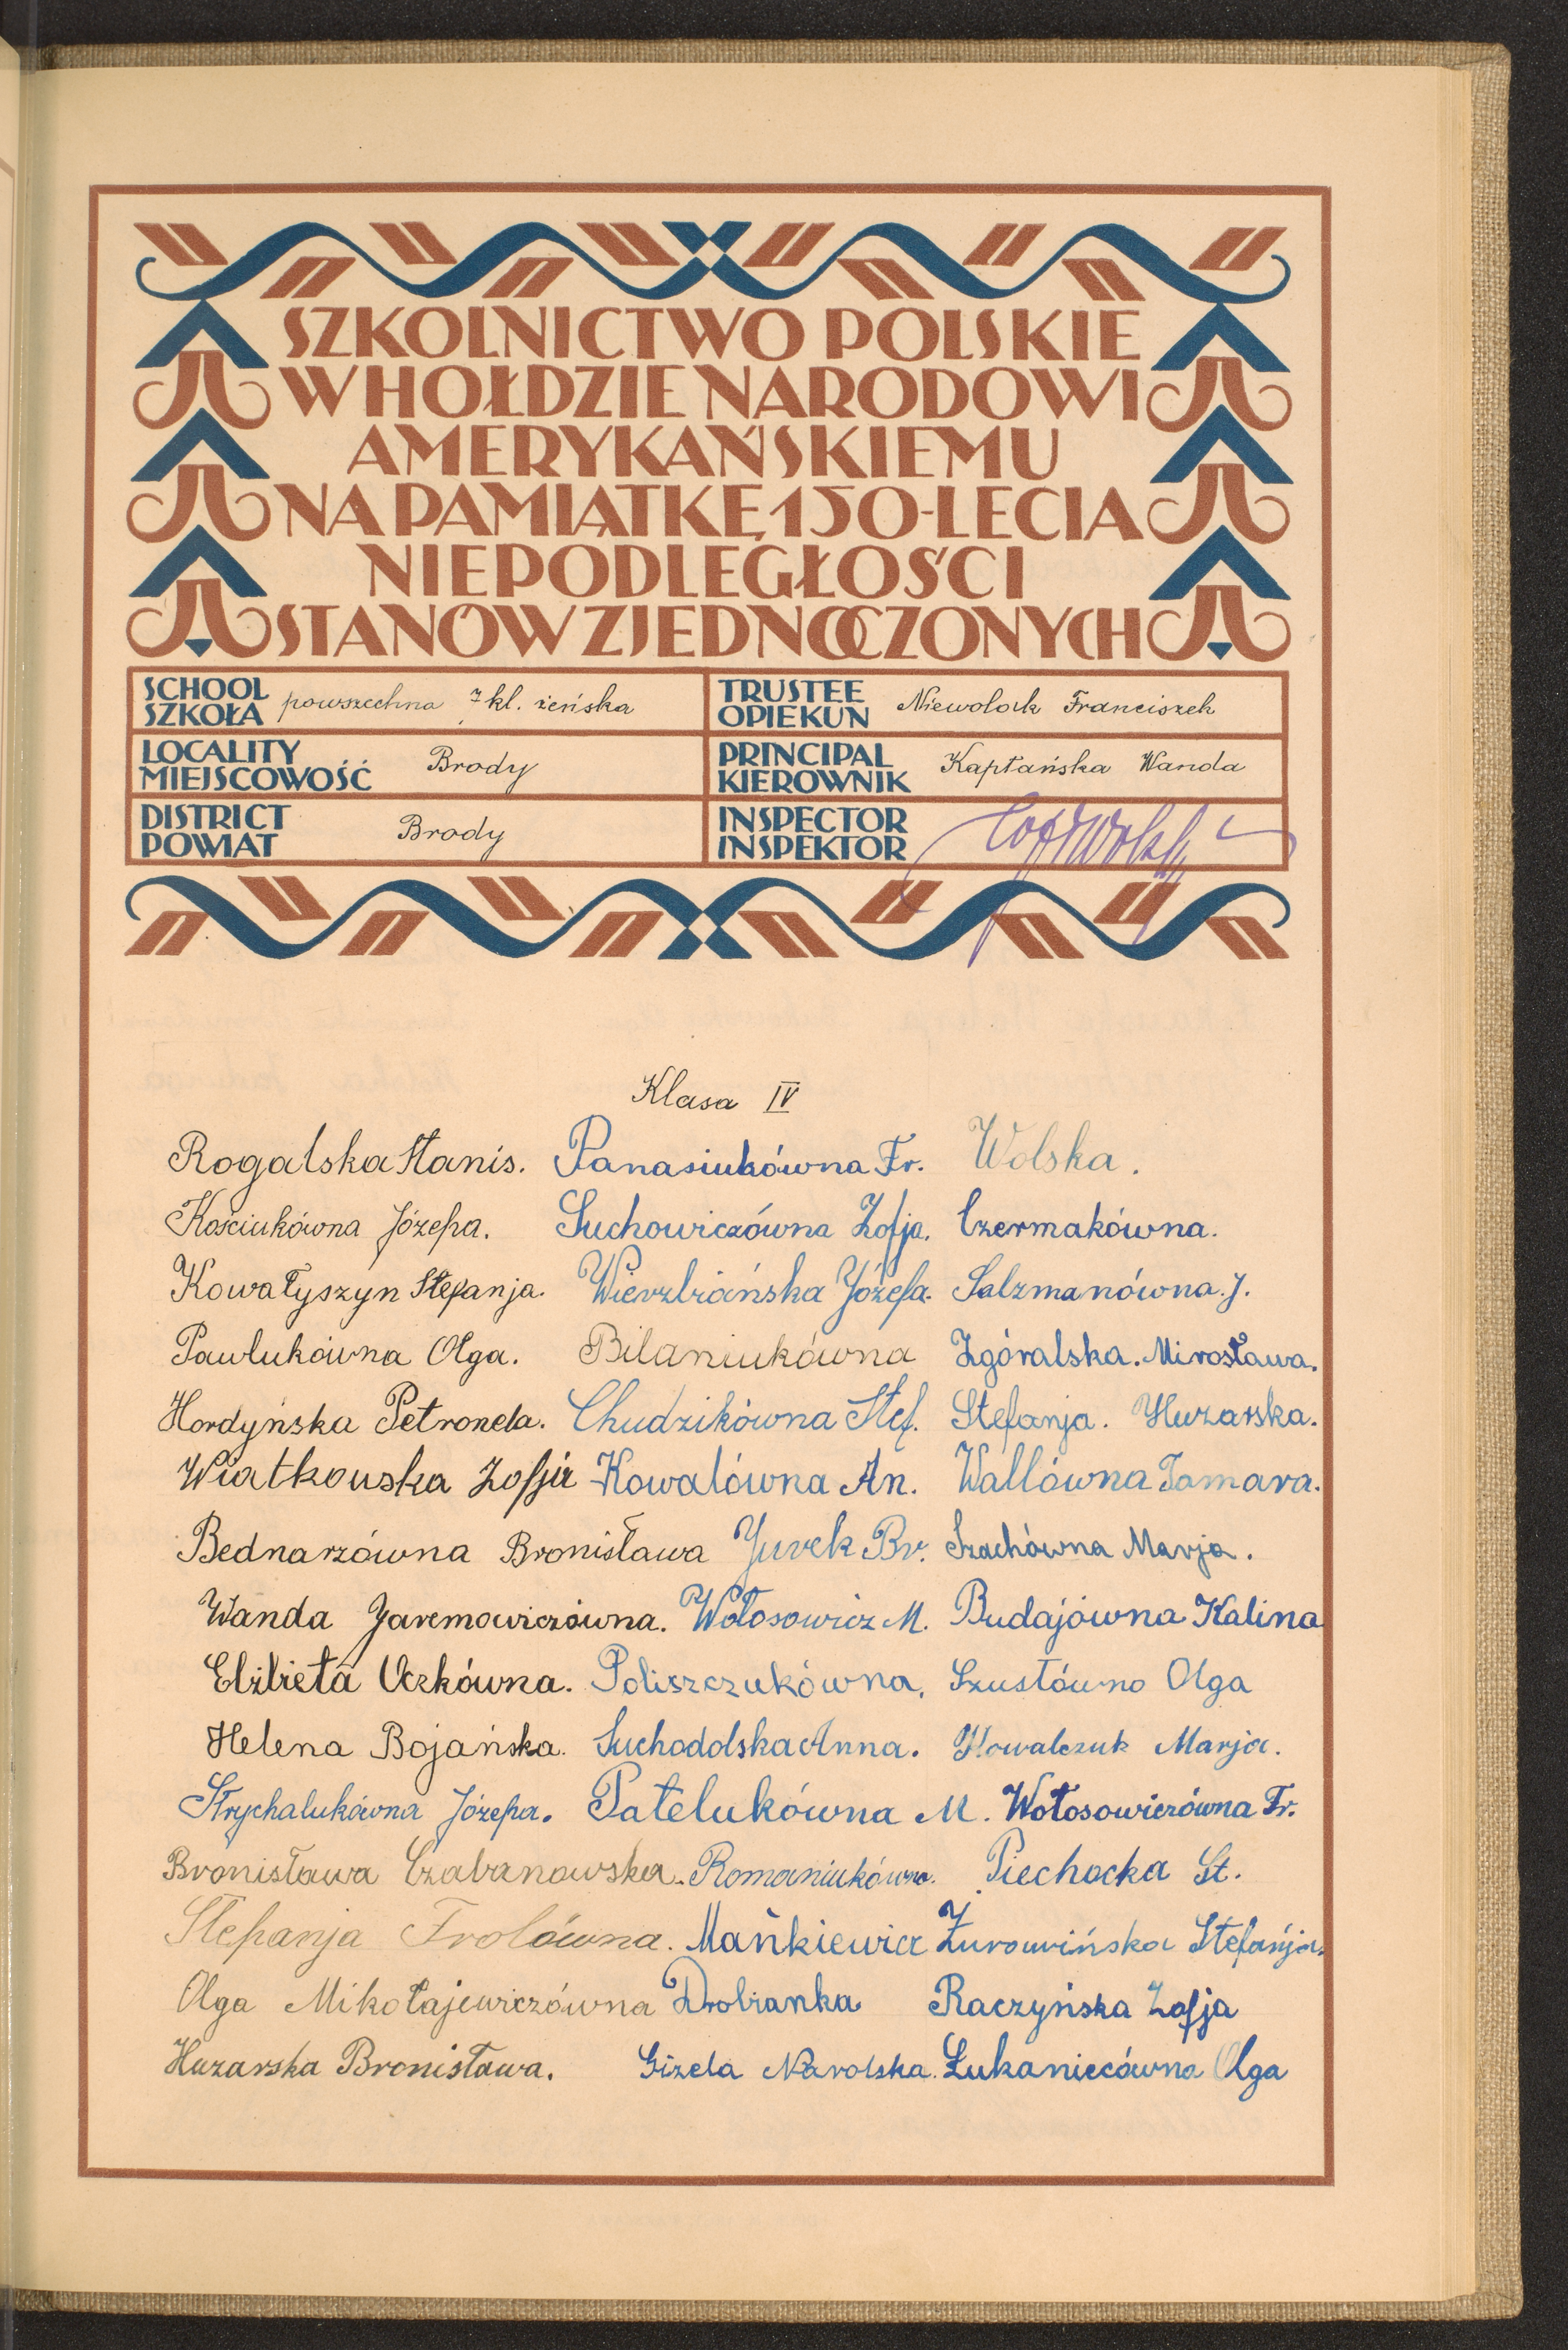 SZKOLNICTWO POLSKIE
W HOŁDZIE NARODOWI
AMERYKAŃSKIEMU
NA PAMIĄTKĘ 150-LECIA
NIEPODLEGŁOŚCI
STANÓW ZJEDNOCZONYCH
SCHOOL SZKOŁA powszechna 7 kl. żeńska
TRUSTEE OPIEKUN Niewolak Franciszek
LOCALITY MIEJSCOWOŚĆ Brody
PRINCIPAL KIEROWNIK Kaptańska Wanda
DISTRICT POWIAT Brody
INSPECTOR INSPEKTOR
Klasa IV
Rogalska Stanis. Panasiukówna Fr. Wolska.
Kościukówna Józefa. Suchowiczówna Zofja. Czermakówna.
Kowałyszyn Stefanja. Wierzbiańska Józefa. Salzmanówna. J.
Pawlukówna Olga. Bilaniukówna Zgóralska. Mirosława.
Hordyńska Petronela. Chudzikówna Stef. Stefanja. Huzarska.
Wiatkowska Zofja Kowalówna An. Wallówna Tamara.
Bednarzówna Bronisława Jurek Br. Szachówna Marja.
Wanda Jaremowiczówna. Wołosowicz M. Budajówna Kalina
Elżbieta Uczkówna. Poliszczukówna. Szustówno Olga
Helena Bojańska. Suchodolska Anna. Kowalczuk Marja.
Strychalukówna Józefa. Patelukówna M. Wołosowiczówna Fr.
Bronisława Czabanowska. Romaniukówna. Piechocka St.
Stefanja Frolówna. Mańkiewicz Żurowińska Stefańja.
Olga Mikołajewiczówna Drobianka Raczyńska Zofja
Huzarska Bronisława. Gizela Narolska. Łukaniecówna Olga